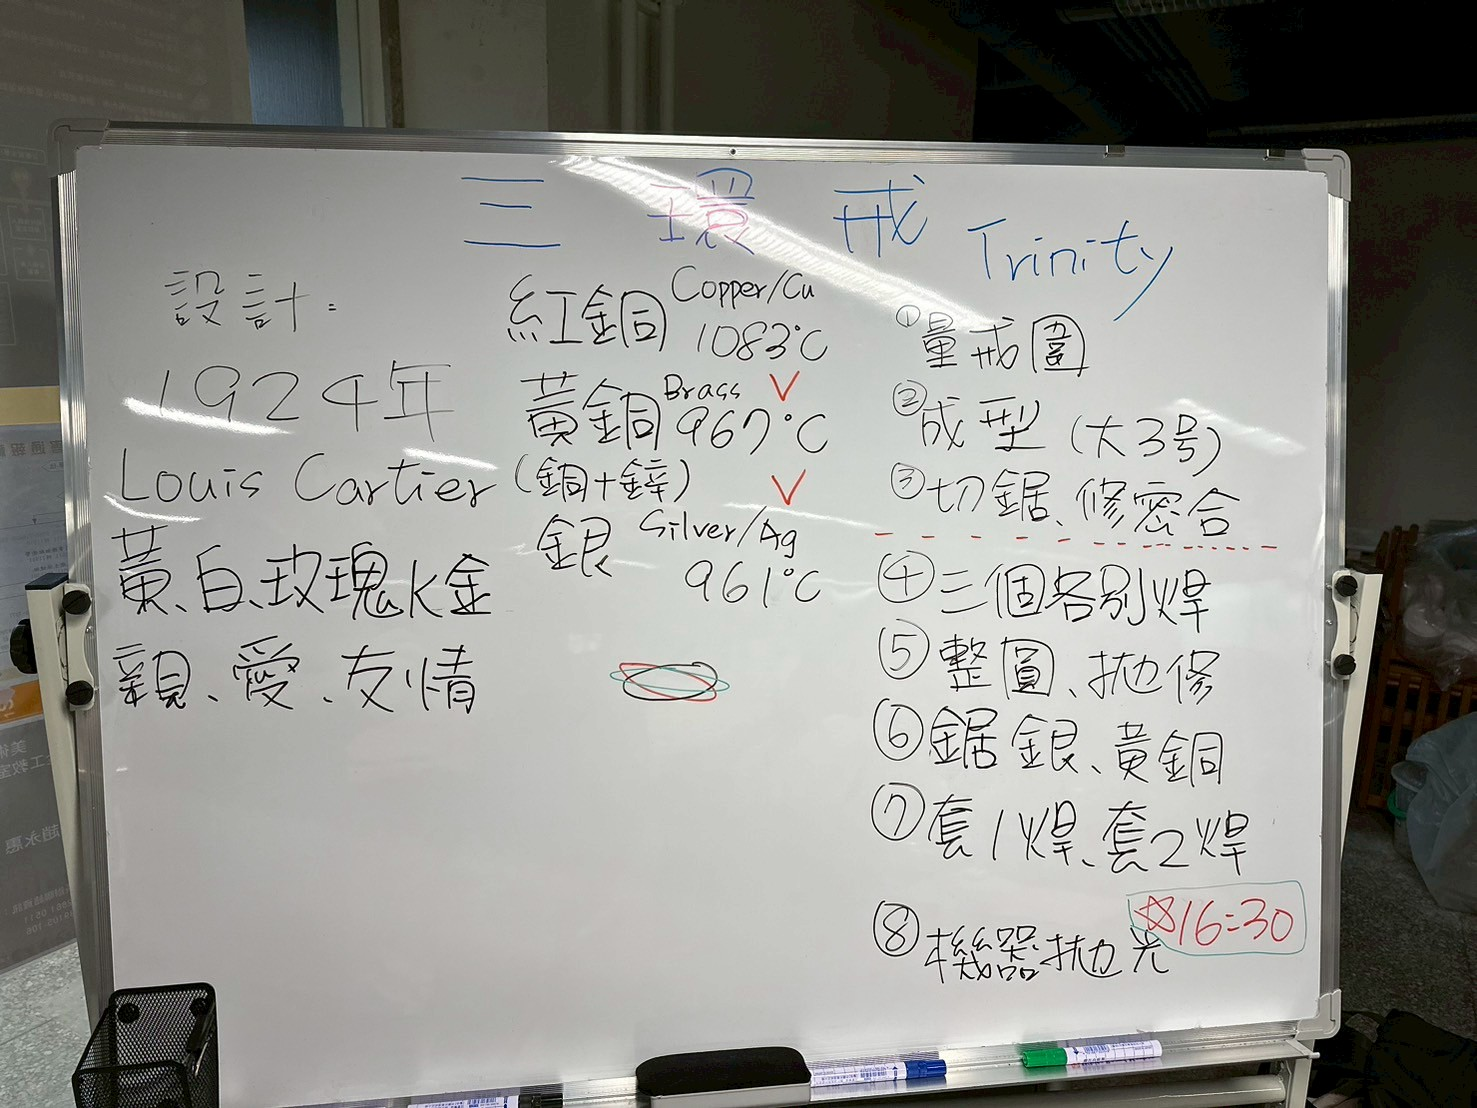 三環戒 Trinity
設計：
1924年
Louis Cartier
黃、白、玫瑰K金
親、愛、友情
紅銅 Copper/Cu
1083°C
黃銅 Brass V
967°C
(銅+鋅) V
銀 Silver/Ag
961°C
①量戒圍
②成型(大3号)
③切鋸、修密合
④三個各別焊
⑤整圓、拋修
⑥鋸銀、黃銅
⑦套1焊、套2焊
⑧機器拋光
☆16:30